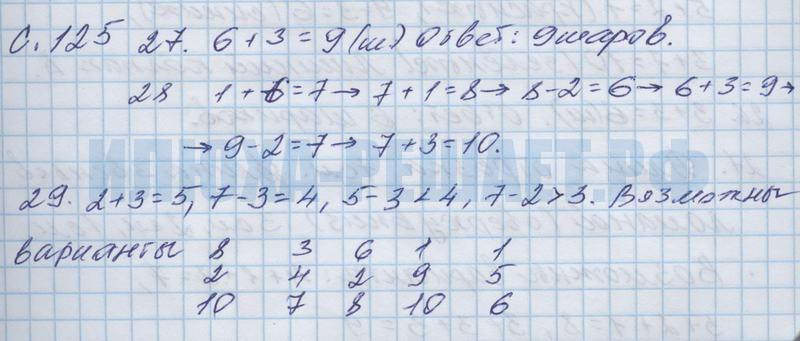 С. 125 27. 6+3=9(ш) Ответ: 9 шаров.
28 1+6=7→ 7+1=8→ 8-2=6→ 6+3=9→
→ 9-2=7→ 7+3=10.
ИПШКА-РЕШАЕТ.РФ
29. 2+3=5, 7-3=4, 5-3<4, 7-2>3. Вазможны
варианты 8 3 6 1 1
2 4 2 9 5
10 7 8 10 6